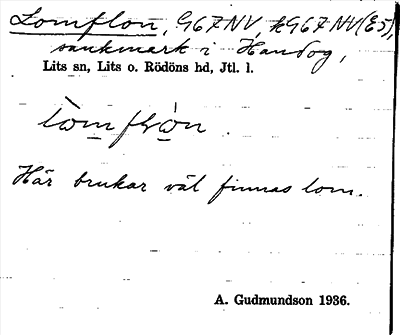 Lomflon, 19G7NV, ÄG67NV(E5),
sankmark i Handog,
Lits sn, Lits o. Rödöns hd, Jtl. l.
lòmflón.
Här brukar väl finnas lom.
A. Gudmundson 1936.